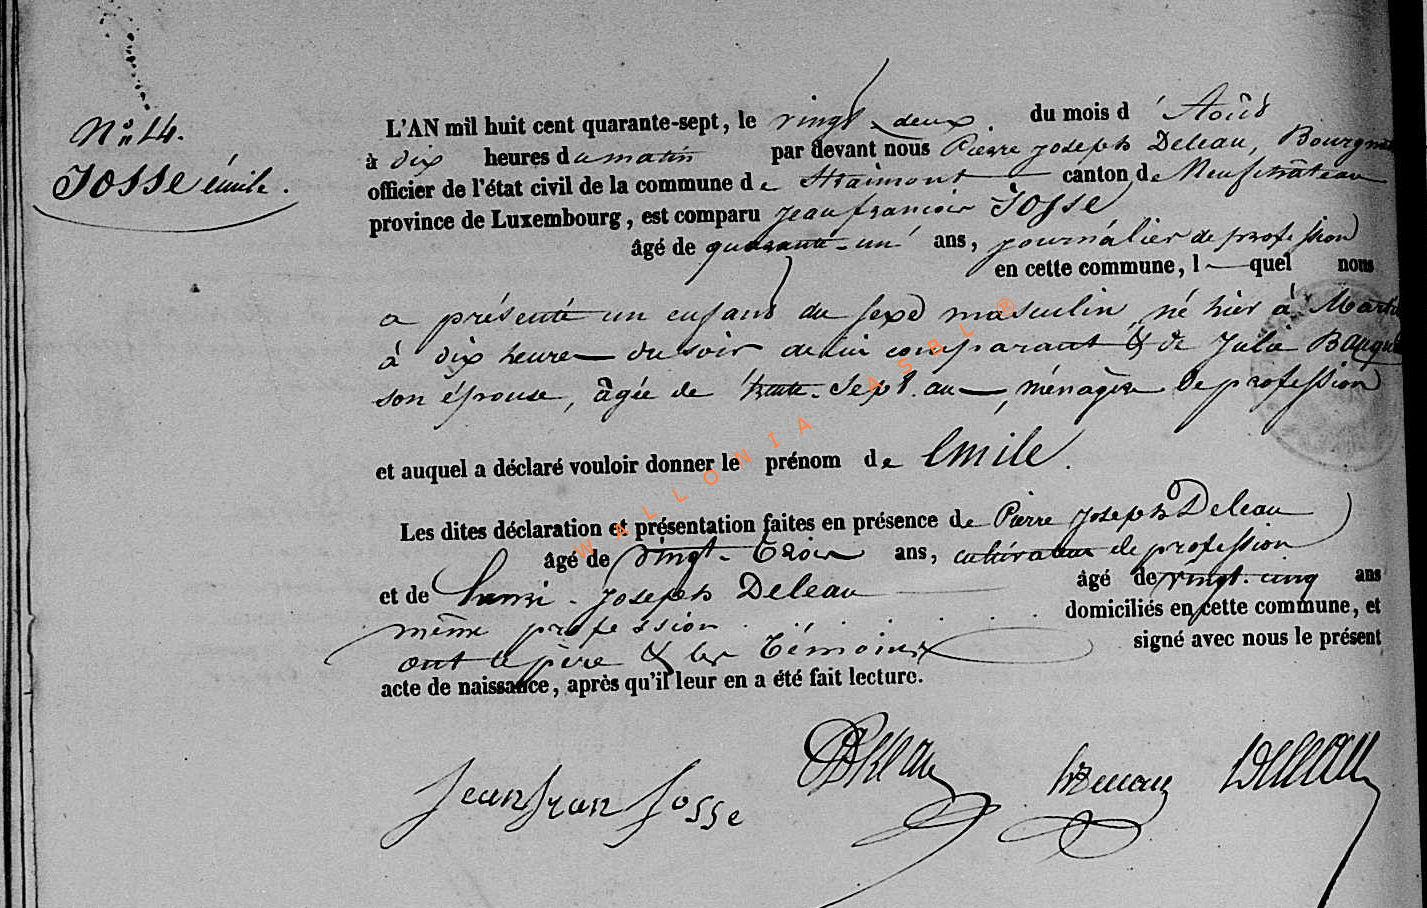 N° 14.
JOSSE émile.
L'AN mil huit cent quarante-sept, le vingt-deux du mois d' Août
à dix heures du matin par devant nous Pierre Joseph Deleau, Bourgm
officier de l'état civil de la commune de Straimont canton de Neufchâteau
province de Luxembourg, est comparu Jean françois Josse
âgé de quarante-un ans, journalier de profession
en cette commune, l quel nous
a présenté un enfant du sexe masculin, né hier à Mart
à dix heures du soir de lui comparant & de Julie
son épouse, âgée de trente-sept ans, ménagère de profession
et auquel a déclaré vouloir donner le prénom de Emile.
Les dites déclaration et présentation faites en présence de Pierre Joseph Deleau
âgé de vingt-trois ans, cultivateur de profession
et de Henri-Joseph Deleau âgé de vingt-cinq ans
même profession domiciliés en cette commune, et
ont le père & les témoins signé avec nous le présent
acte de naissance, après qu'il leur en a été fait lecture.
Jean fran Josse Deleau
WALLONIA ASBL®